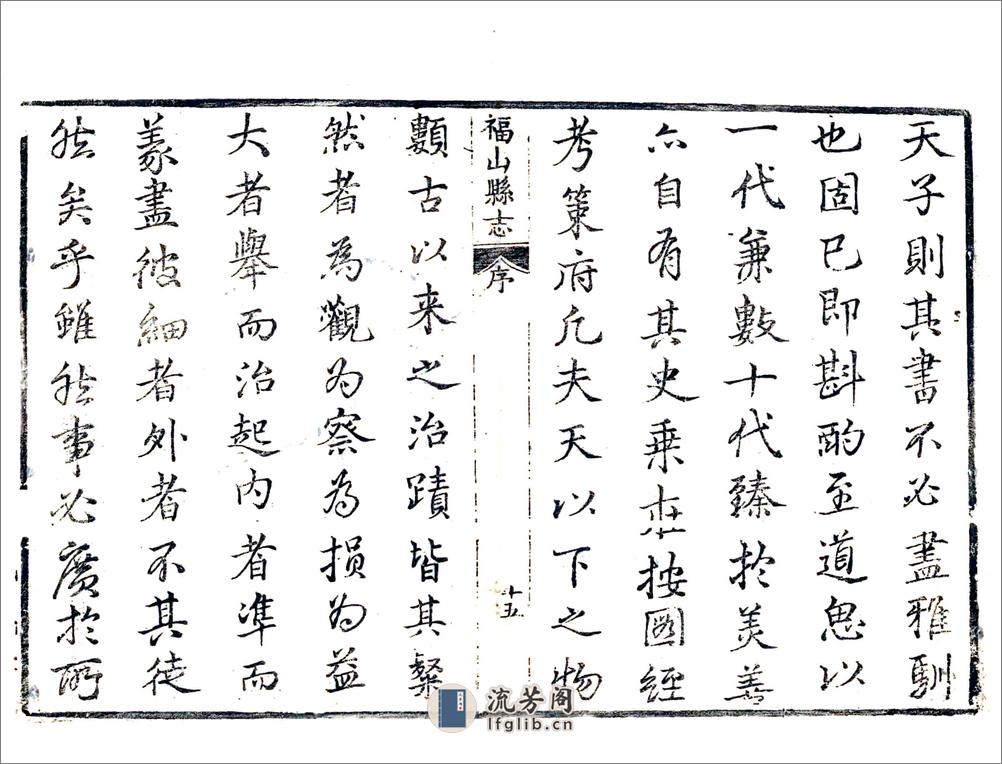 天子則其書不必盡雅馴
也固已即斟酌至道愚以
一代兼數十代臻於美善
亦自有其史乘在按圖經
考策府凡夫天以下之物
福山縣志
序
十五
顥古以来之治蹟皆其粲
然者為觀為察為損為益
大者舉而治起内者準而
義盡彼細者外者不其徒
然矣乎雖然事必廣於所
流芳阁
lfglib.cn